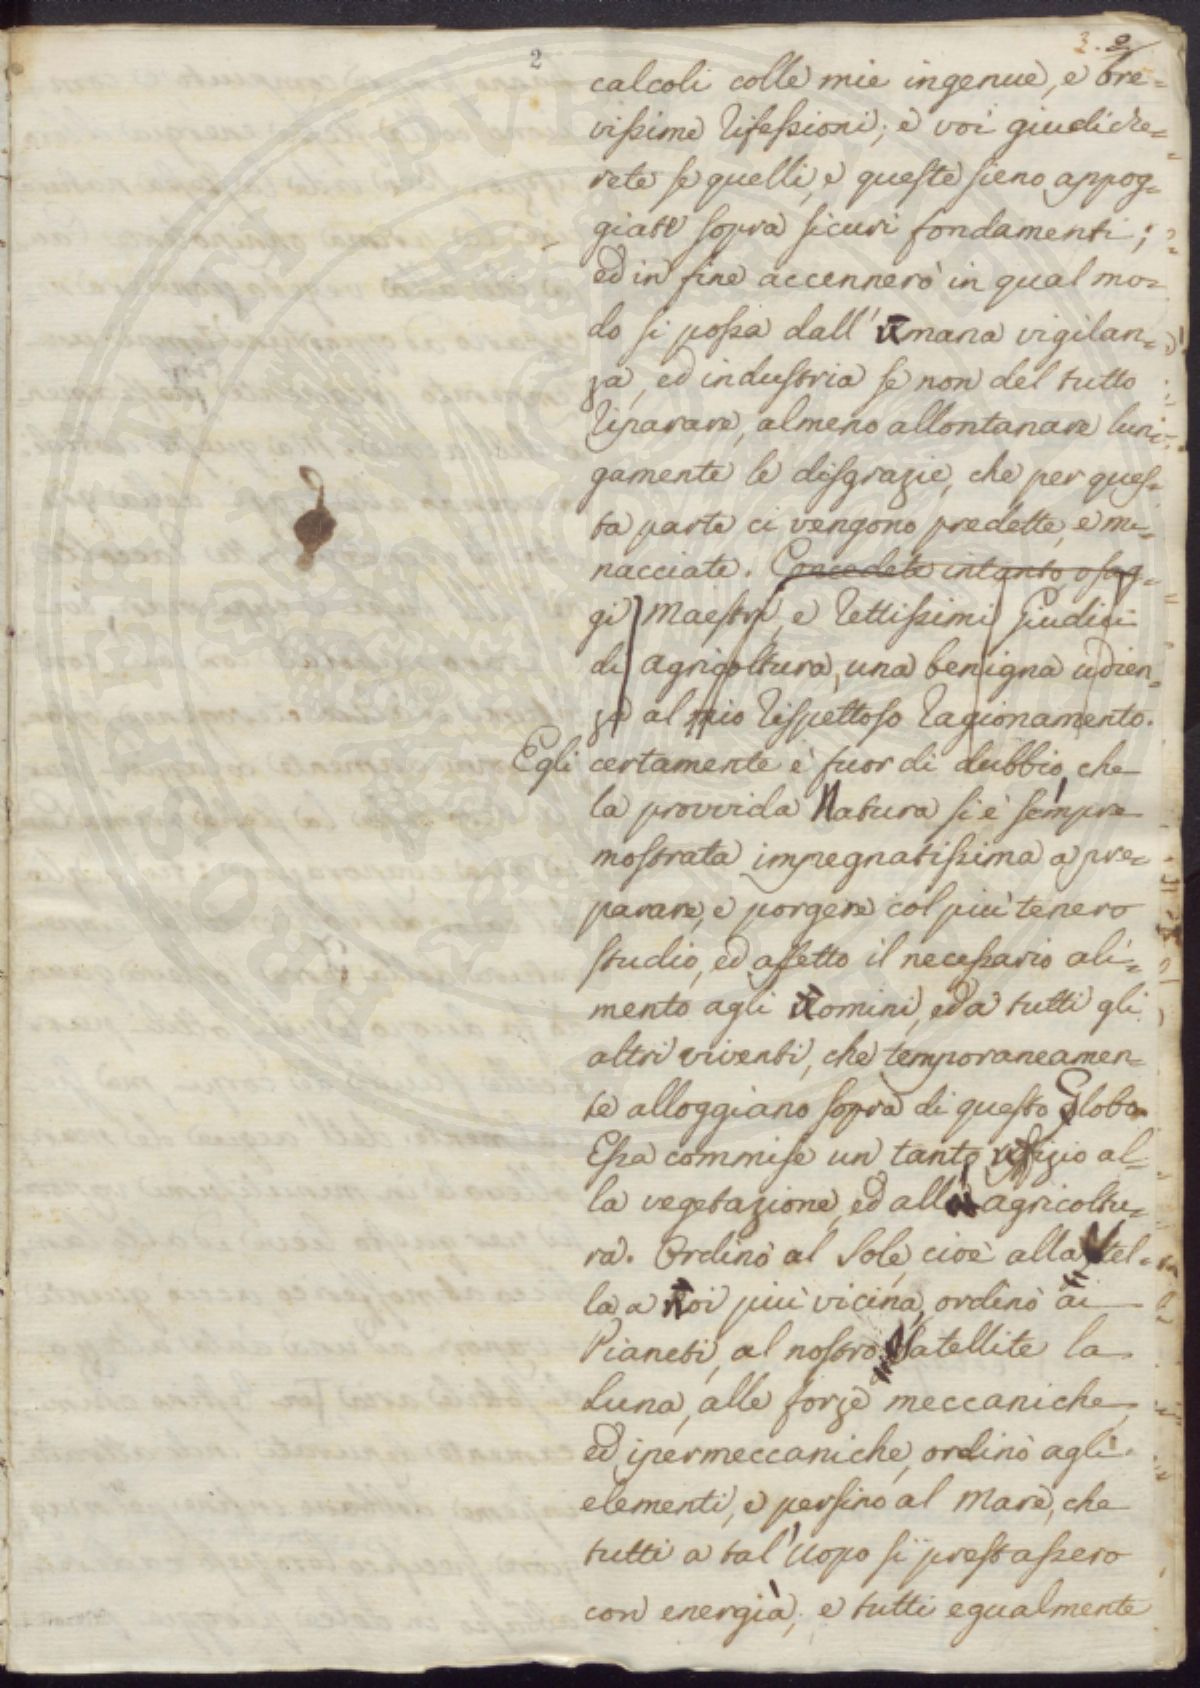 2
3. 2
calcoli colle mie ingenue, e bre=
vissime rifessioni; e voi giudiche=
rete se quelli, e queste sieno appog=
giate sopra sicuri fondamenti;
ed in fine accennerò in qual mo=
do si possa dall'umana vigilan=
za, ed industria se non del tutto
riparare, almeno allontanare lun=
gamente le disgrazie, che per ques=
ta parte ci vengono predette, e mi=
nacciate. Concedete intanto, o sag=
gi Maestri, e rettissimi Giudici
di agricoltura, una benigna udien=
za al mio rispettoso ragionamento.
Egli certamente è fuor di dubbio, che
la provvida Natura si è sempre
mostrata impegnatissima a pre=
parare, e porgere col più tenero
studio, ed affetto il necessario ali=
mento agli uomini, ed a tutti gli
altri viventi, che temporaneamen=
te alloggiano sopra di questo Globo.
Essa commise un tanto ufizio al=
la vegetazione, ed all' agricoltu=
ra. Ordinò al Sole, cioè alla Stel=
la a noi più vicina, ordinò ai
Pianeti, al nostro Satellite la
Luna, alle forze meccaniche,
ed ipermeccaniche, ordinò agli
elementi, e persino al Mare, che
tutti a tal'uopo si prestassero
con energia, e tutti egualmente